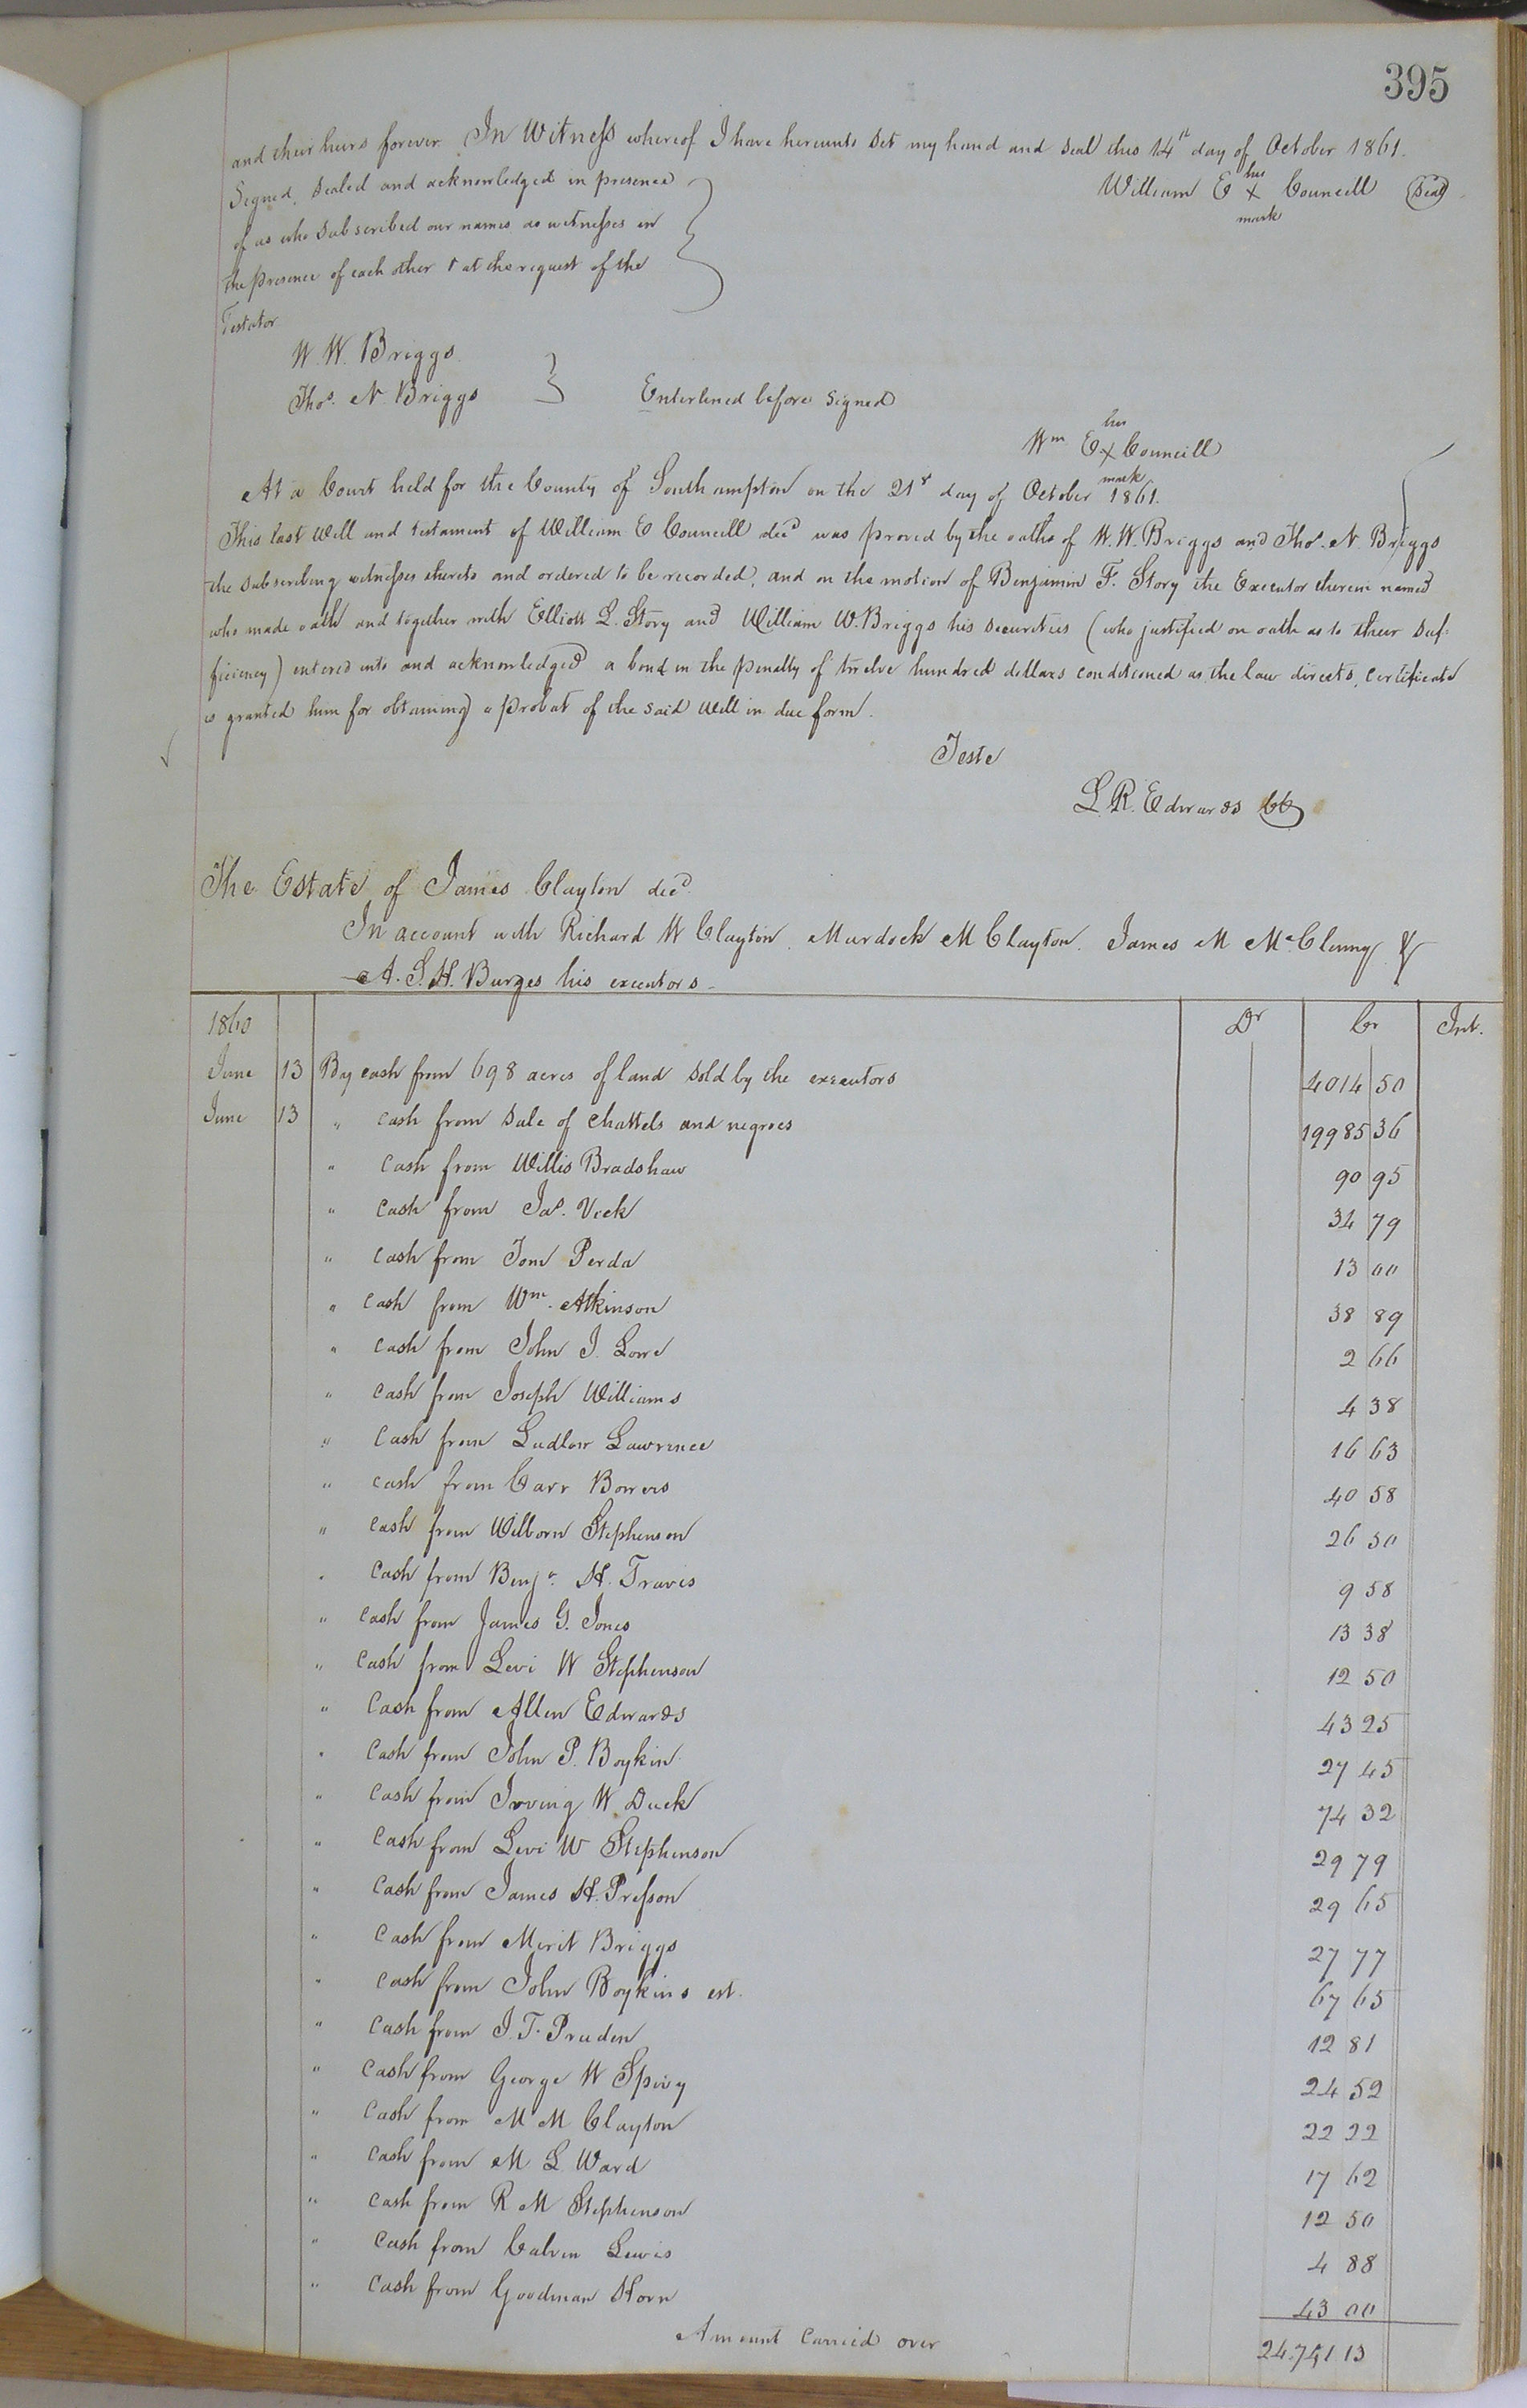 395
and their heirs forever. In Witness whereof I have hereunto set my hand and seal this 14th day of October 1861.
Signed, sealed and acknowledged in presence
of us who subscribed our names as witnesses in
the presence of each other & at the request of the
Testator
his
William E x Councill (Seal)
mark
W. W. Briggs
Thos. N Briggs
Enterlined before signed
his
Wm E x Councill
mark
At a Court held for the County of Southampton on the 21st day of October 1861.
This last Will and testament of William E Councill decd was proved by the oaths of W. W. Briggs and Thos. N. Briggs
the subscribing witnesses thereto and ordered to be recorded, and on the motion of Benjamin F. Story the Executor therein named
who made oath and together with Elliott L. Story and William W. Briggs his securities (who justified on oath as to their suf-
ficiency) entered into and acknowledged a bond in the penalty of twelve hundred dollars conditioned as the law directs, certificate
is granted him for obtaining a probat of the said Will in due form.
Teste
L. R. Edwards CC
The Estate of James Clayton decd
In account with Richard W Clayton, Murdock M Clayton. James M McClenny &
A. S. H. Burges his executors
1860 Dr Cr Int.
June 13 By cash from 698 acres of land sold by the executors 4014 50
June 13 " cash from sale of chattels and negroes 19985 36
" cash from Willis Bradshaw 90 95
" cash from Jas. Vick 34 79
" cash from Tom Perda 13 00
" cash from Wm. Atkinson 38 89
" cash from John J. Lowe 2 66
" cash from Joseph Williams 4 38
" cash from Ludlow Lawrence 16 63
" cash from Carr Bowers 40 58
" cash from Wilborn Stephenson 26 50
" cash from Benja. H. Travis 9 58
" cash from James G. Jones 13 38
" cash from Levi W Stephenson 12 50
" cash from Allen Edwards 43 25
" cash from John P. Boykin 27 45
" cash from Irving W. Duck 74 32
" cash from Levi W Stephenson 29 79
" cash from James H. Presson 29 65
" cash from Merit Briggs 27 77
" cash from John Boykins est. 67 65
" cash from J. T. Pruden 12 81
" cash from George W Spivy 24 52
" cash from M M Clayton 22 22
" cash from M. L. Ward 17 62
" cash from R M Stephenson 12 50
" cash from Calvin Lewis 4 88
" cash from Goodman Horn 43 00
Amount carried over 24,741 13